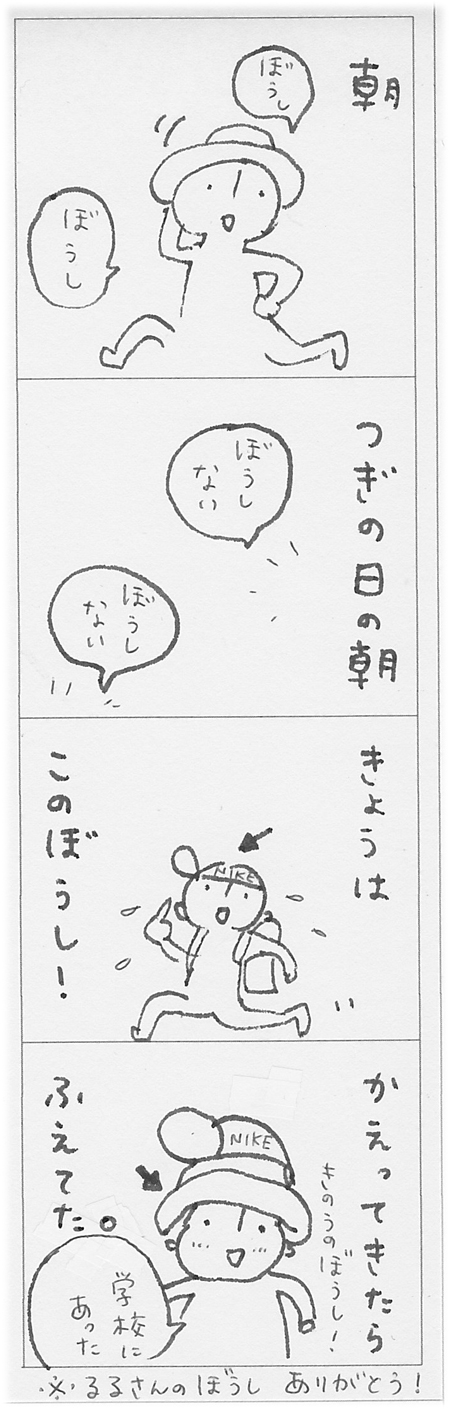 朝
ぼうし
ぼうし
つぎの日の朝
ぼうし
ない
ぼうし
ない
きょうは
NIKE
このぼうし!
かえってきたら
きのうのぼうし!
NIKE
ふえてた。
学校に
あった
※るるさんのぼうし ありがとう!